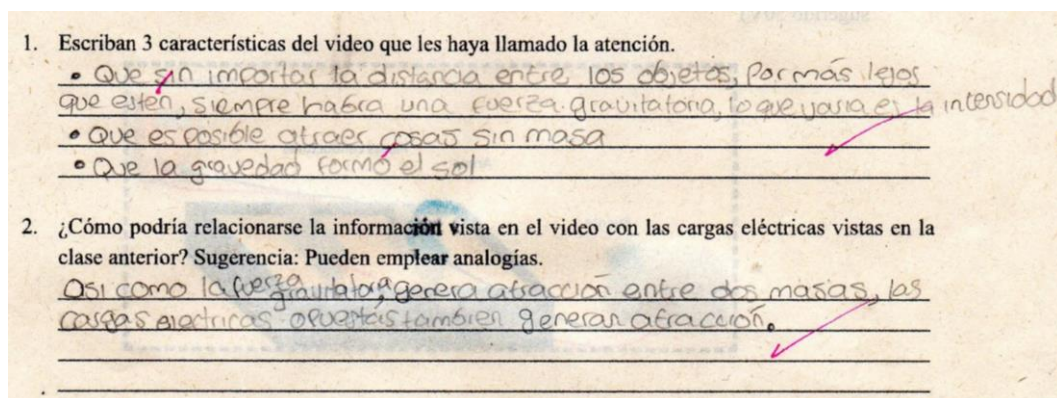 1. Escriban 3 características del video que les haya llamado la atención.
• Que sin importar la distancia entre los objetos, por más lejos
que esten, siempre habra una fuerza gravitatoria, lo que varia es la intensidad
• Que es posible atraer cosas sin masa
• Que la gravedad formó el sol
2. ¿Cómo podría relacionarse la información vista en el video con las cargas eléctricas vistas en la
clase anterior? Sugerencia: Pueden emplear analogías.
Asi como la fuerza gravitatora, genera atracción entre dos masas, las
cargas electricas opuestas tambien generan atracción.